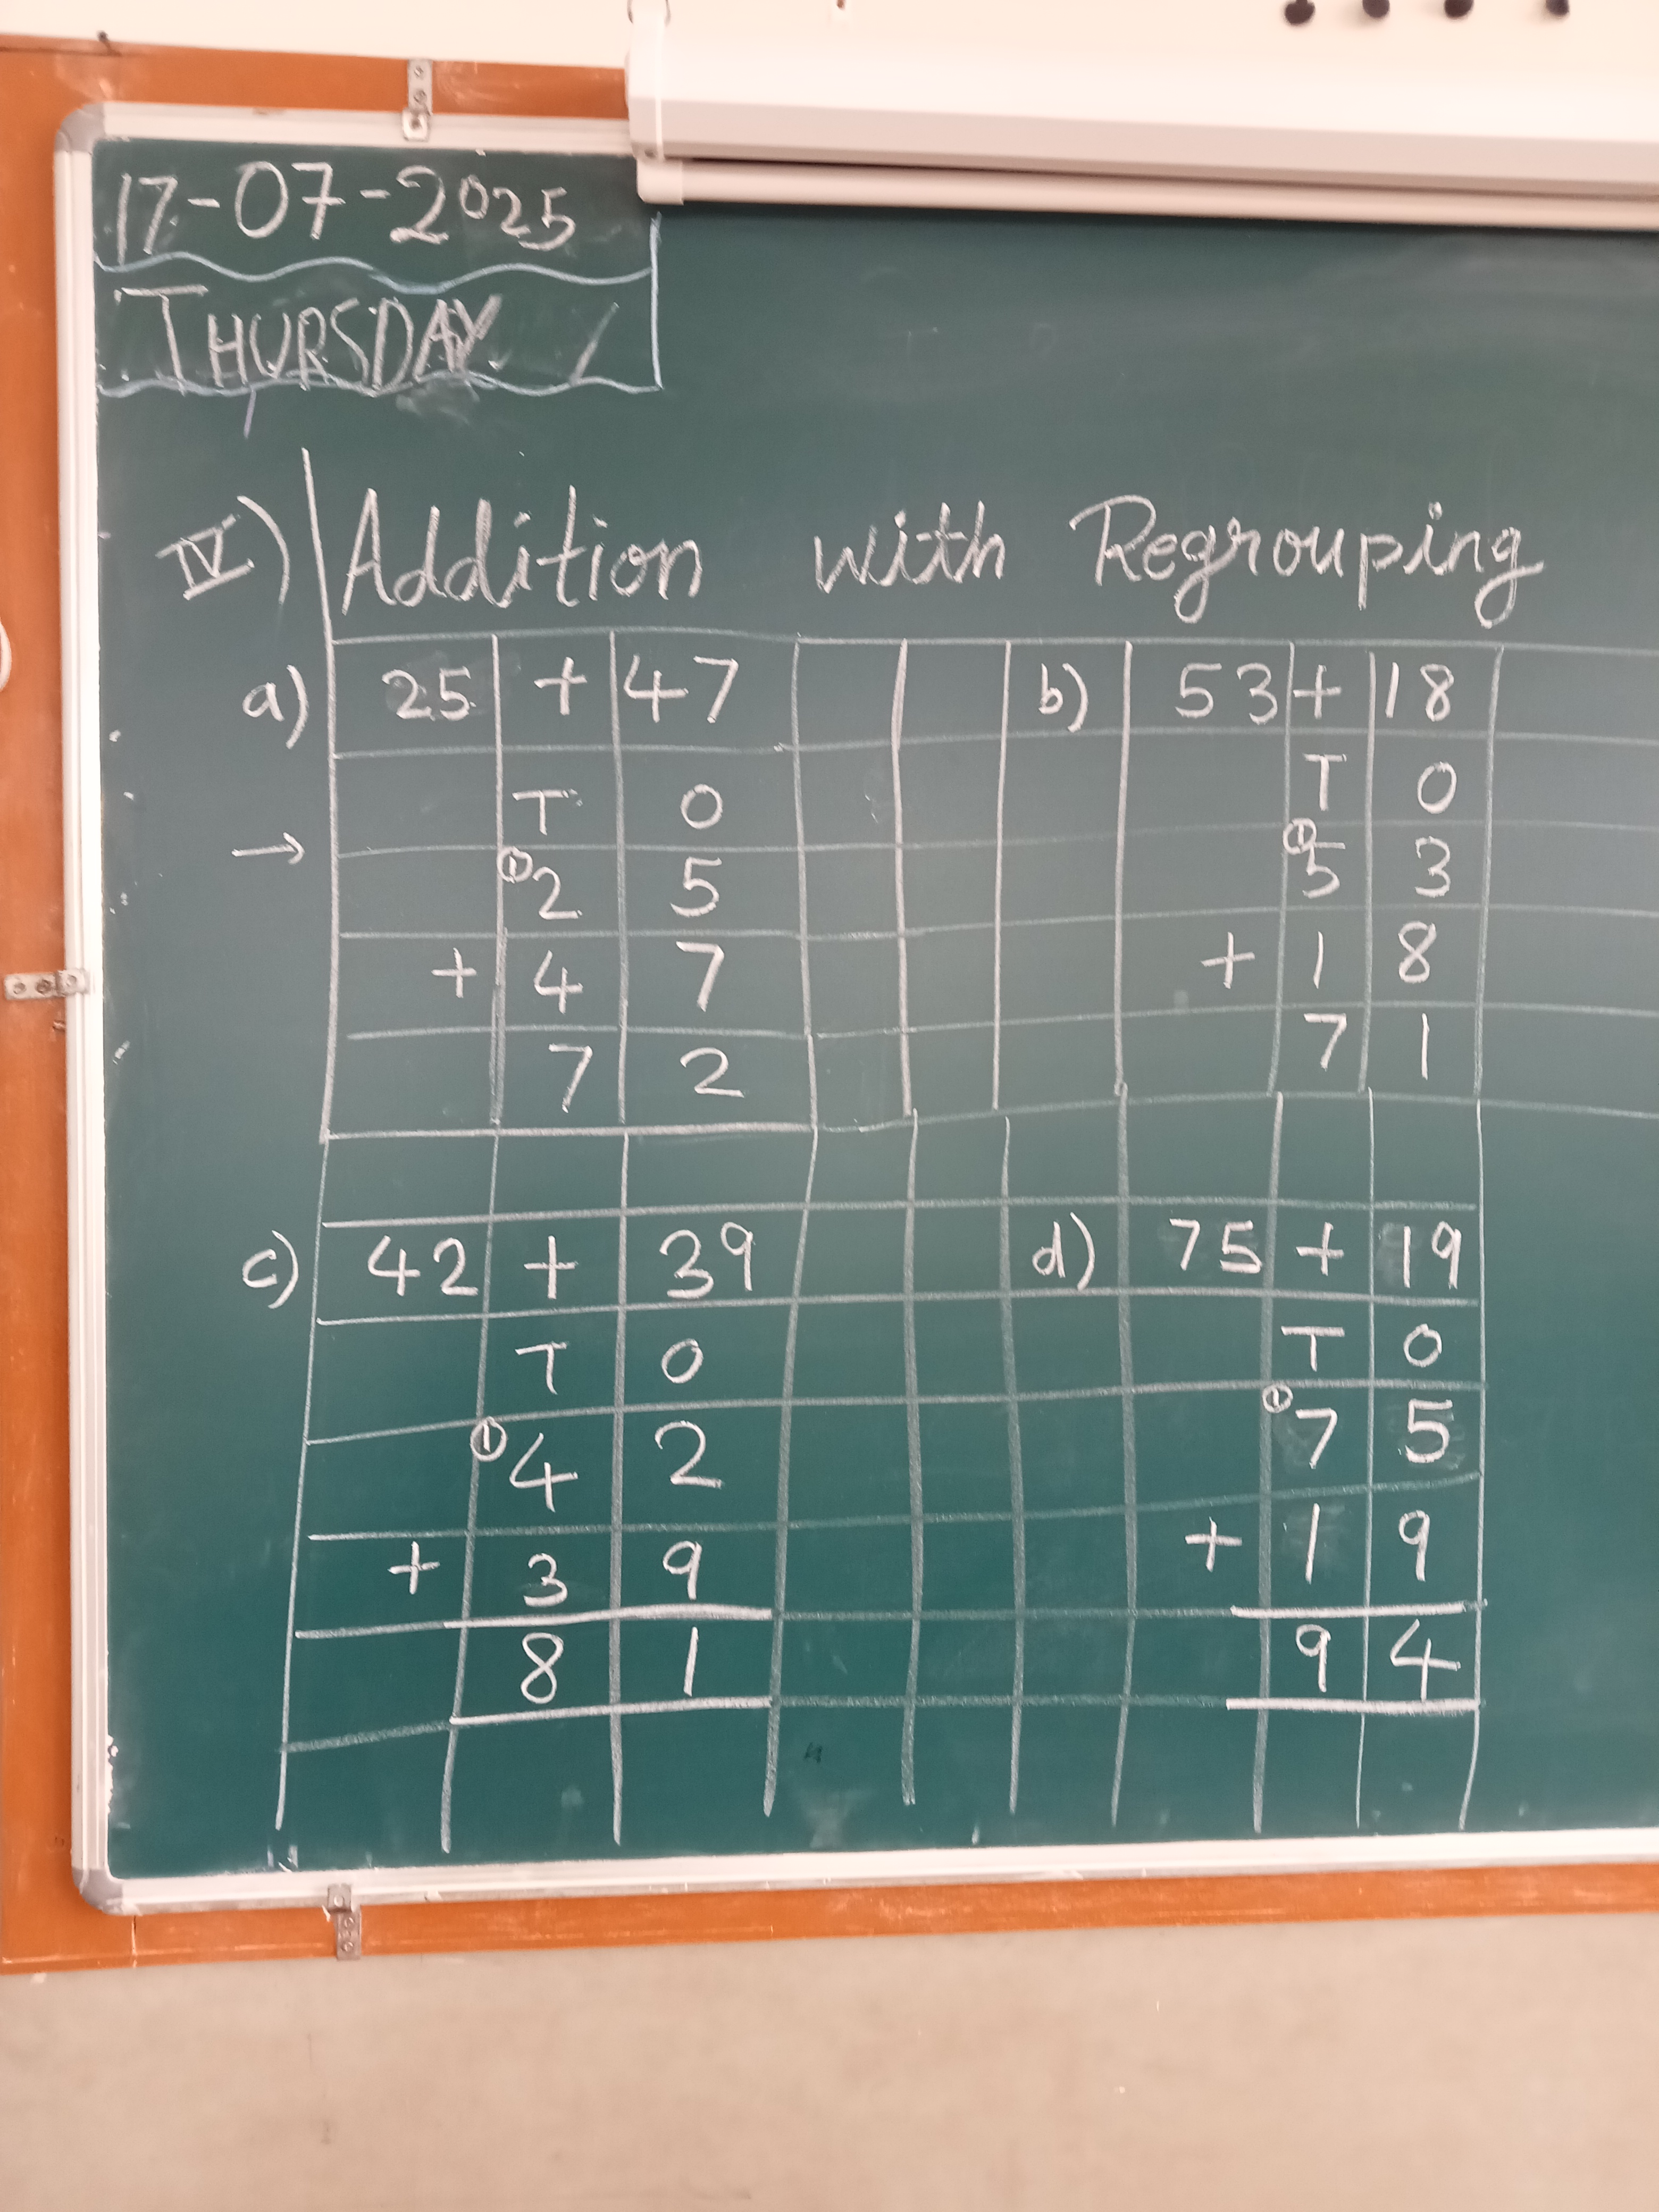 17-07-2025
THURSDAY
IV) Addition with Regrouping
a) 25 + 47
T O
→
① 2 5
+ 4 7
7 2
b) 53 + 18
T O
① 5 3
+ 1 8
7 1
c) 42 + 39
T O
① 4 2
+ 3 9
8 1
d) 75 + 19
T O
① 7 5
+ 1 9
9 4